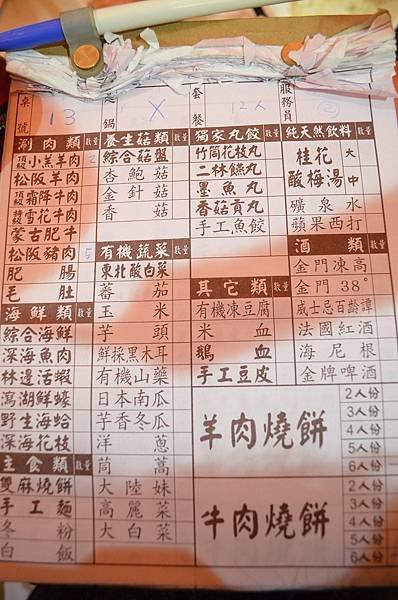 桌號 13
鍋 X
套餐 12人
服務員
涮肉類 數量
頂級小羔羊肉 2
松阪羊肉
頂級霜降牛肉
特級雪花牛肉
蒙古肥牛
松阪豬肉 5
肥腸
毛肚
海鮮類 數量
綜合海鮮
深海魚肉
林邊活蝦
澎湖鮮蠔
野生海蛤
深海花枝
主食類 數量
雙麻燒餅
手工麵
冬粉
白飯
養生菇類 數量
綜合菇盤
杏鮑菇
金針菇
香菇
有機蔬菜 數量
東北酸白菜
蕃茄
玉米
芋頭
鮮採黑木耳
有機山藥
日本南瓜
芋香冬瓜
洋蔥
茼蒿
大陸妹
高麗菜
大白菜
獨家丸餃 數量
竹筒花枝丸
二林貢丸
墨魚丸
香菇貢丸
手工魚餃
其它類 數量
有機凍豆腐
米血
鴨血
手工豆皮
純天然飲料 數量
桂花酸梅湯 大
中
礦泉水
蘋果西打
酒類 數量
金門凍高
金門38°
威士忌百齡譚
法國紅酒
海尼根
金牌啤酒
羊肉燒餅
2人份
3人份
4人份
5人份
6人份
牛肉燒餅
2人份
3人份
4人份
5人份
6人份